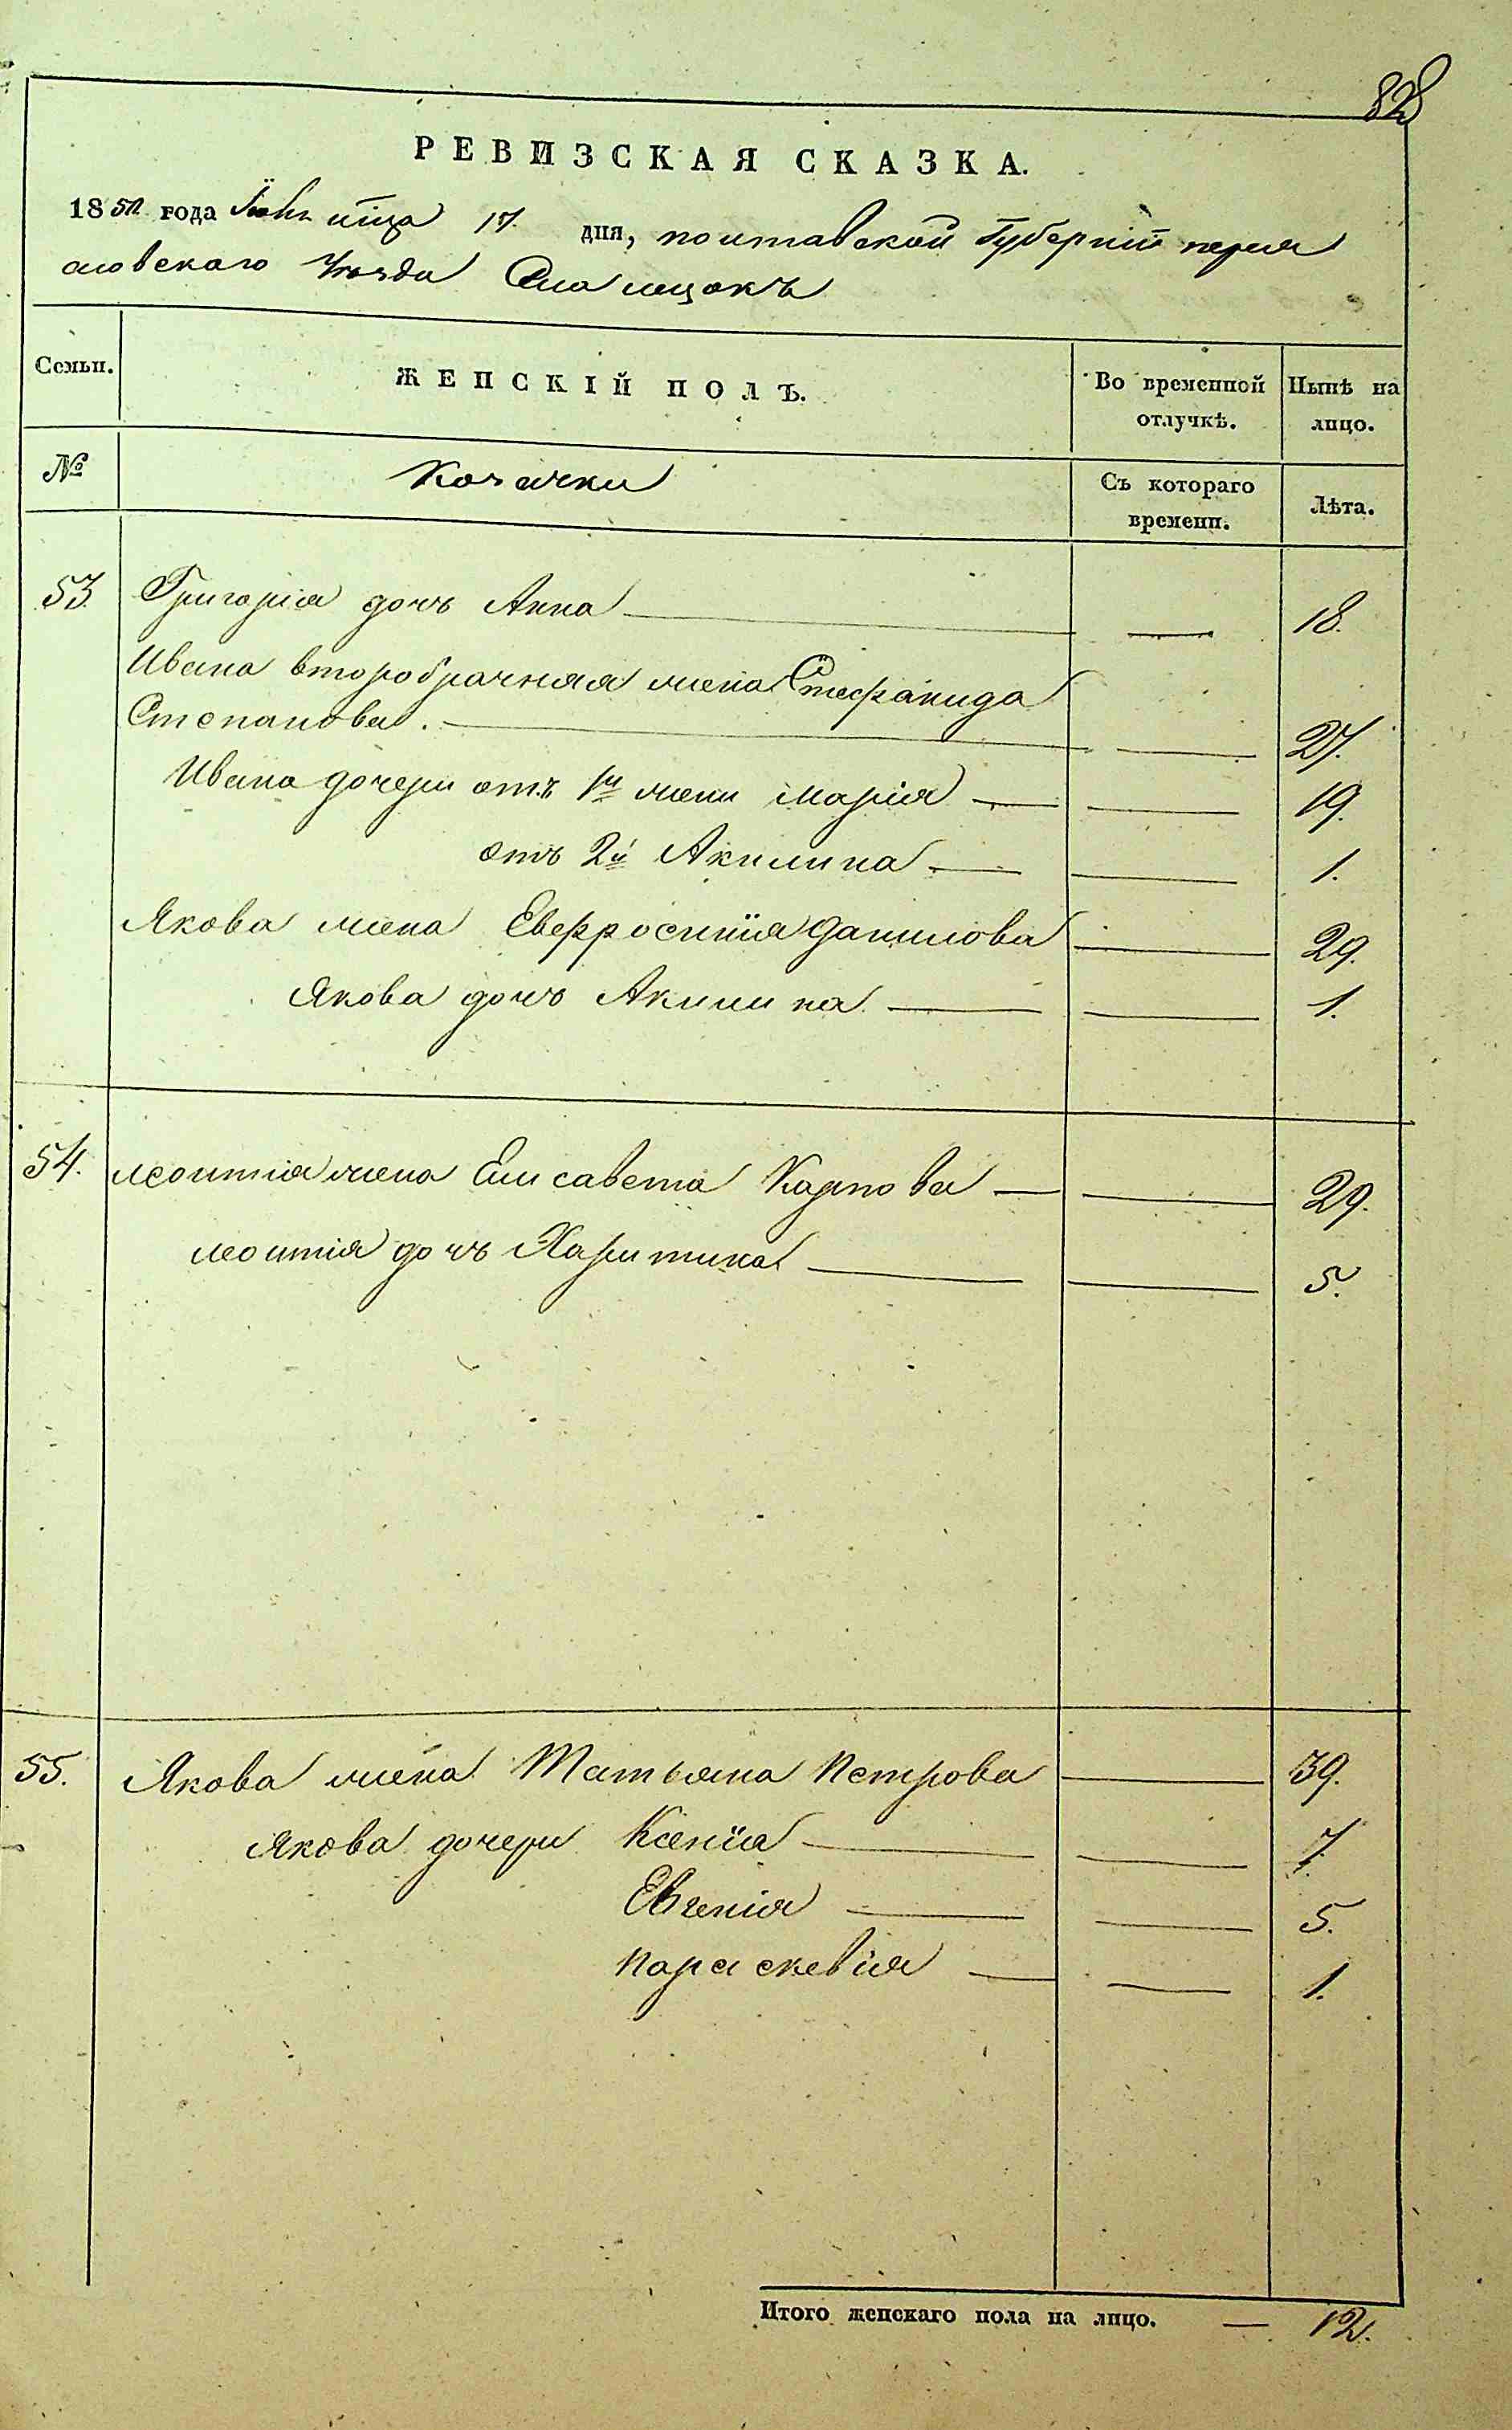 828
РЕВИЗСКАЯ СКАЗКА.
1850 года Іюня мѣсяца 17 дня, полтавской Губерніи перея
словскаго Уѣзда
Семьи. ЖЕНСКІЙ ПОЛЪ. Во временной отлучкѣ. Нынѣ на лицо.
№ Козачки Съ котораго времени. Лѣта.
53 Григорія дочь Анна — — 18.
Ивана второбрачная жена Стефанида
Степанова. — — 27.
Ивана дочери отъ 1й жены Марія — — 19.
отъ 2й Акилина — — 1.
Якова жена Евфросинія Данилова — 29.
Якова дочь Акилина — — 1.
54. Леонтія жена Елисавета Карпова — — 29.
Леонтія дочь Харитина — — 5.
55. Якова жена Татьяна Петрова — 39.
Якова дочери Ксенія — — 7.
Евгенія — — 5.
Параскевія — — 1.
Итого женскаго пола на лицо. — 12.